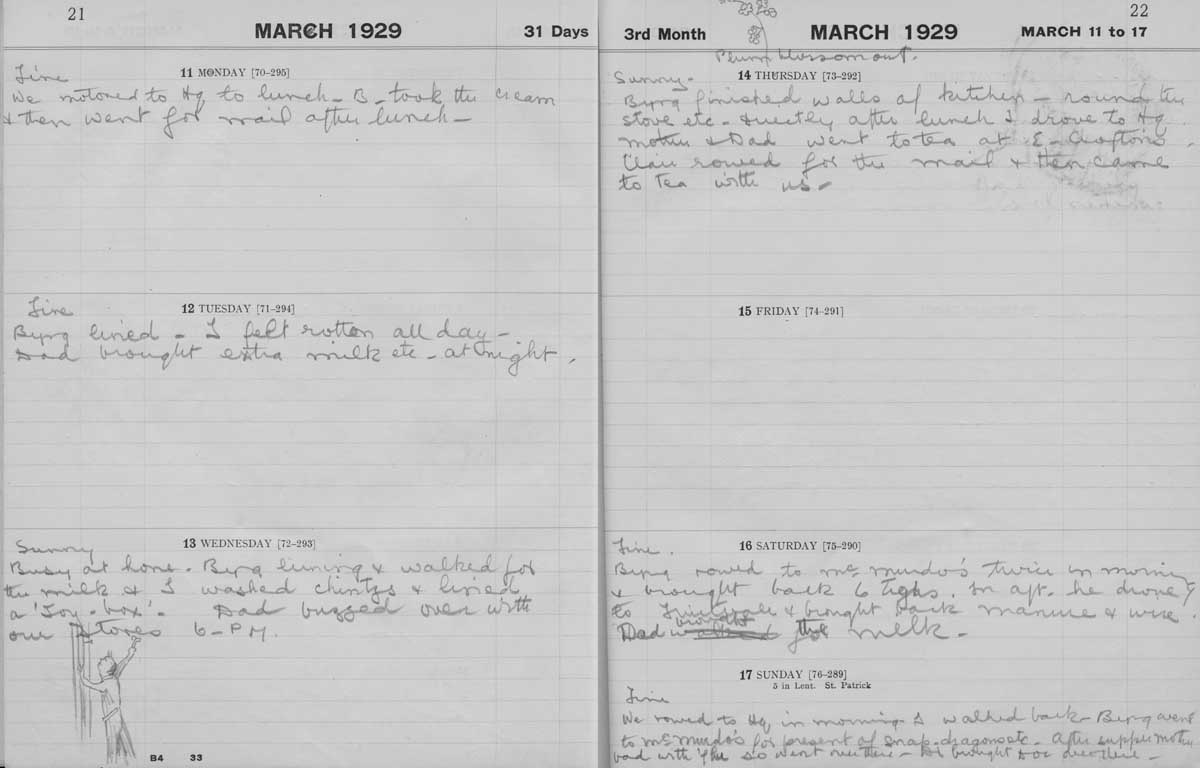 21
MARCH 1929
31 Days
11 MONDAY [70-295]
Fine
We motored to Hq to lunch - B - took the cream
& then went for mail after lunch -
12 TUESDAY [71-294]
Fine
Byng lined - I felt rotten all day -
Dad brought extra milk etc - at night.
13 WEDNESDAY [72-293]
Sunny
Busy at home. Byng lining & walked for
the milk & I washed chintzs & lined
a 'Toy-box'. Dad buzzed over with
our stores 6-PM.
B4 33
22
3rd Month
MARCH 1929
MARCH 11 to 17
Plum blossom out.
14 THURSDAY [73-292]
Sunny -
Byng finished walls of kitchen - round the
stove etc - directly after lunch I drove to Hq
mother & Dad went to tea at E. Crofton's.
rowed for the mail & then came
to tea with us -
15 FRIDAY [74-291]
16 SATURDAY [75-290]
Fine.
Byng rowed to McMurdo's twice in morning
& brought back 6 In aft. he drove
to & brought back manure & wire.
Dad brought the milk -
17 SUNDAY [76-289]
5 in Lent. St. Patrick
Fine
We rowed to Hq in morning & walked back - Byng went
to McMurdo's for present of snap-dragons etc. After supper mother